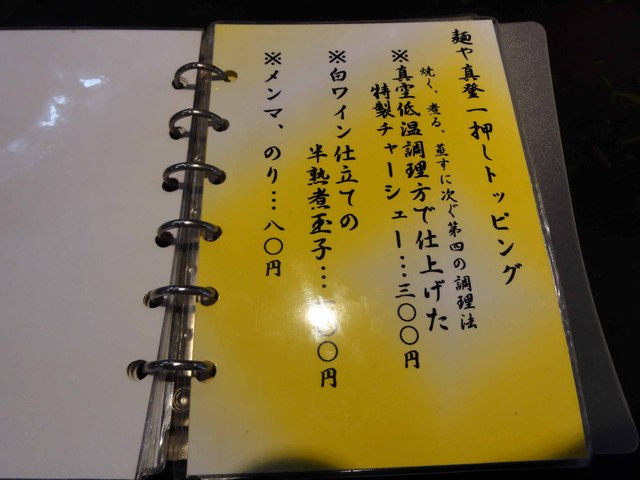 麺や真登一押しトッピング
焼く、煮る、蒸すに次ぐ第四の調理法
※真空低温調理方で仕上げた
特製チャーシュー…三〇〇円
※白ワイン仕立ての
半熟煮玉子…〇〇円
※メンマ、のり…八〇円